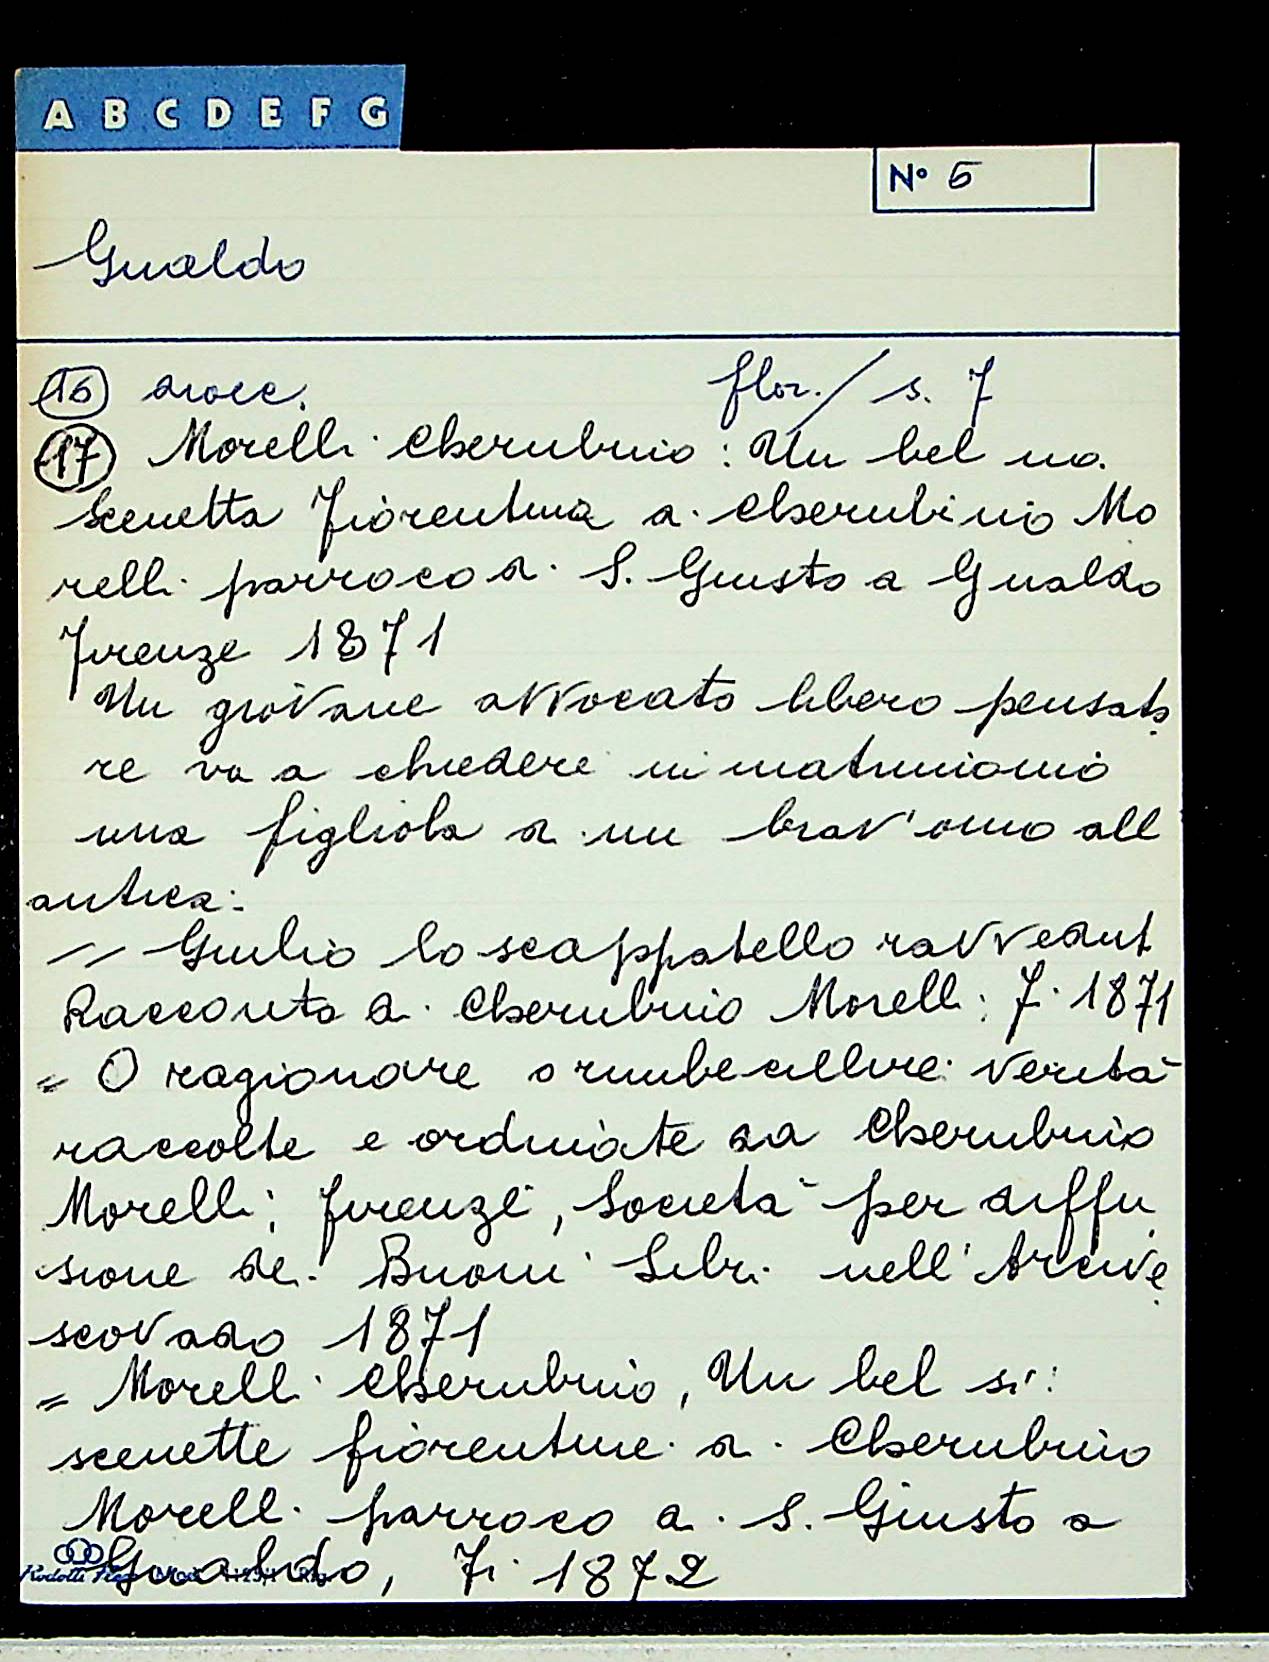 A B C D E F G
N° 5
Gualdo
16 diocc. flor. / s. 7
17 Morelli Cherubino: Un bel no.
Scenetta Fiorentina di Cherubinio Mo
relli parroco di S. Giusto a Gualdo
Firenze 1871
Un giovane avvocato libero pensato
re va a chiedere in matrimonio
una figliola di un brav'omo all
antica:
= Giulio lo scappatello ravvedut
Racconto di Cherubino Morelli: F. 1871
= O ragionare o rimbecillire: verità
raccolte e ordinate da Cherubino
Morelli; Firenze, Società per diffu
sione dei Buoni Libri nell'Arcive
scovado 1871
= Morelli Cherubino, Un bel si:
scenette fiorentine di Cherubino
Morelli parroco di S. Giusto a
Gualdo, Fi 1872